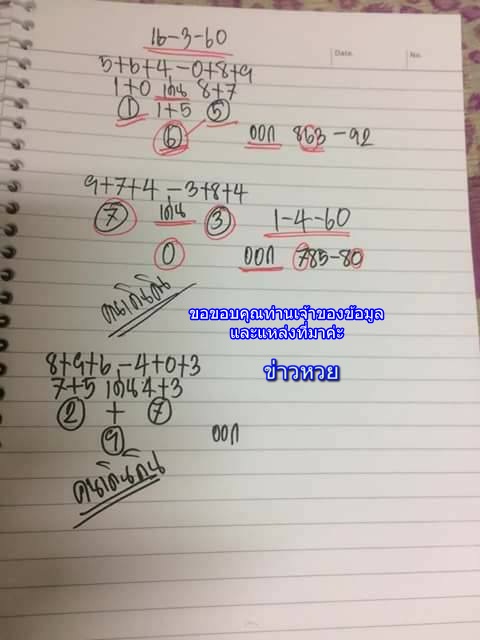 16-3-60
Date. No.
5+6+4-0+8+9
1+0 เด่น 8+7
1 1+5 5
6 ออก 863-92
9+7+4-3+8+4
7 เด่น 3 1-4-60
0 ออก 785-80
คนเดินดิน
ขอขอบคุณท่านเจ้าของข้อมูล
และแหล่งที่มาค่ะ
ข่าวหวย
8+9+6-4+0+3
7+5 เด่น 4+3
2 + 7
9 ออก
คนเดินดิน